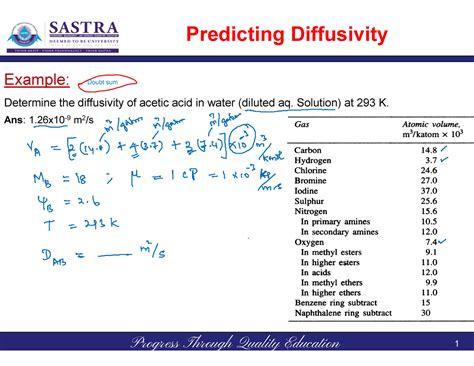 SASTRA
DEEMED TO BE UNIVERSITY
Predicting Diffusivity
Example:
Doubt sum
Determine the diffusivity of acetic acid in water (diluted aq. Solution) at 293 K.
Ans: 1.26x10-9 m2/s
m³/katom m³/katom m³/katom
V_A = [2(14.8) + 4(3.7) + 2(7.4)] × 10⁻³ m³/kmol
M_B = 18 ; μ = 1 cP = 1 × 10⁻³ kg/m/s
ψ_B = 2.6
T = 293 K
D_AB = ___ m²/s
Gas Atomic volume,
m³/katom × 10³
Carbon 14.8 ✓
Hydrogen 3.7 ✓
Chlorine 24.6
Bromine 27.0
Iodine 37.0
Sulphur 25.6
Nitrogen 15.6
In primary amines 10.5
In secondary amines 12.0
Oxygen 7.4 ✓
In methyl esters 9.1
In higher esters 11.0
In acids 12.0
In methyl ethers 9.9
In higher ethers 11.0
Benzene ring subtract 15
Naphthalene ring subtract 30
Progress Through Quality Education
1